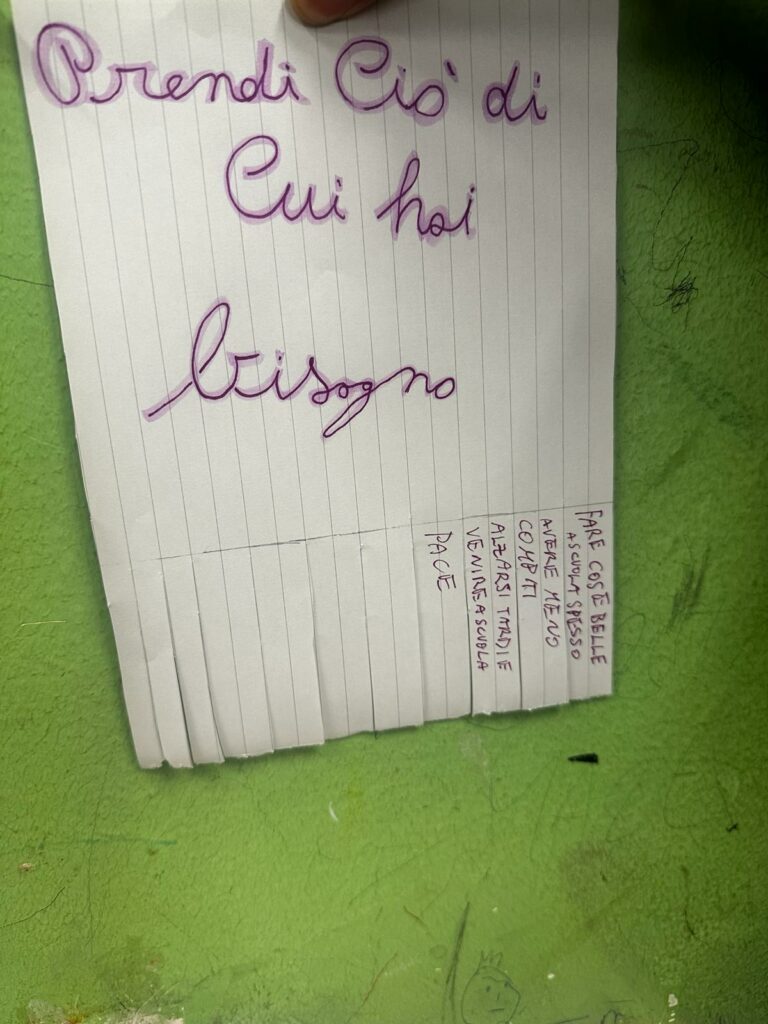 Prendi Ciò di
Cui hai
bisogno
FARE COSE BELLE
A SCUOLA SPESSO
AVERE MENO
COMPITI
ALZARSI TARDI E
VENIRE A SCUOLA
PACE